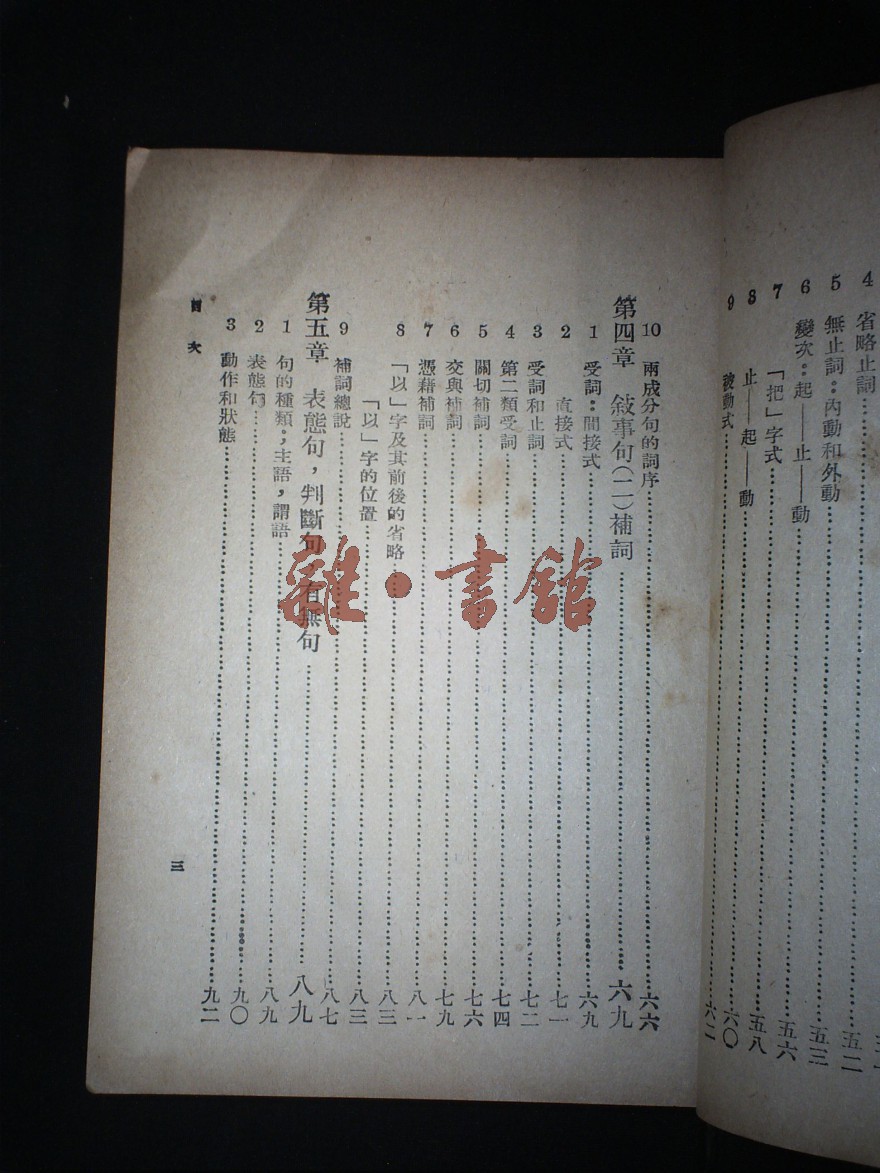 4 省略止詞
5 無止詞:內動和外動……五二
6 變次:起——止——動……五三
7 「把」字式……五六
8 止——起——動……五八
9 被動式……六〇
六二
10 兩成分句的詞序……六六
第四章 敍事句(二)補詞……六九
1 受詞:間接式……六九
2 直接式……七一
3 受詞和止詞……七二
4 第二類受詞……七四
5 關切補詞……七六
6 交與補詞……七九
7 憑藉補詞……八一
8 「以」字及其前後的省略……八三
「以」字的位置……八三
9 補詞總說……八七
第五章 表態句,判斷句,有無句……八九
1 句的種類;主語,謂語……八九
2 表態句……九〇
3 動作和狀態……九二
目次
三
雜·書館